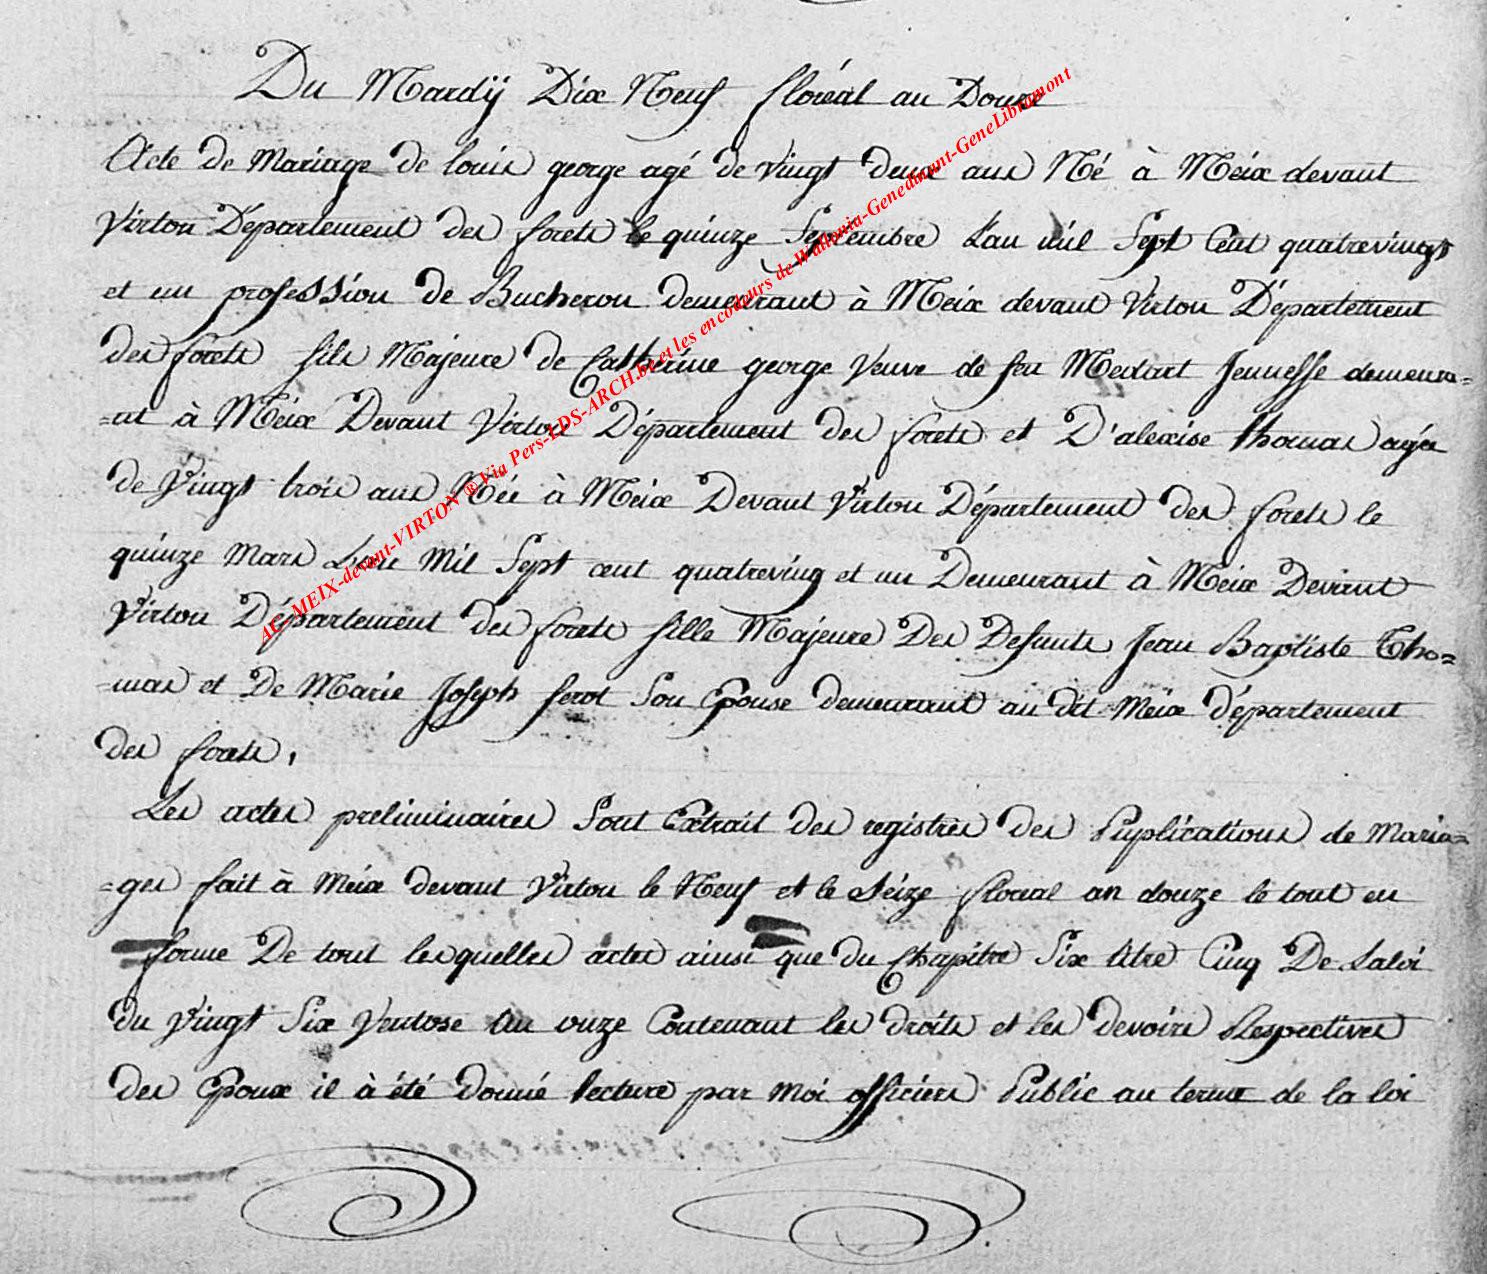 Du Mardij Dix Neuf floréal an Douze
Acte de Mariage de louis george agé de Vingt deux ans Né à Meix devant
Virton Département des forets le quinze Septembre L'an mil Sept Cent quatrevingt
et un profession de Bucheron demeurant à Meix devant Virton Département
des forets fils Majeure de Catherine george Veuve de feu Medart Jeunesse demeura=
=nt à Meix Devant Virton Département des forets et D'alexise thomas agée
de Vingt trois ans Née à Meix Devant Virton Département des forets le
quinze Mars L'an Mil Sept cent quatreving et un Demeurant à Meix Devant
Virton Département des forets fille Majeure Des Defunts Jean Baptiste Tho=
=mas et De Marie Joseph ferot Son Epouse demeurant au dit Meix département
des forets,
Les actes preliminaires Sont Extrait des registres des Puplications de Maria=
=ges fait à Meix devant Virton le Neuf et le Seize floreal an douze le tout en
forme De tout lesquelles actes ainsi que du Chapitre Six titre Cinq De Laloi
du Vingt Six Ventose An onze Contenant les droits et les devoirs Respectives
des Epoux il à été donné lecture par Moi officiers Public au terme de la loi
AC-MEIX-devant-VIRTON ® Via Pers-LDS-ARCH.be et les encodeurs de Wallonia-Genedinant-GeneLibramont